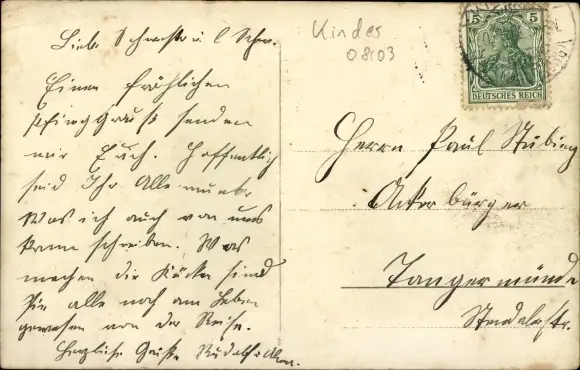 Liebe Schwester u. l. Schw.
Einen fröhlichen
Pfingstgruß senden
wir Euch. Hoffentlich
seid Ihr Alle munter
was ich auch von uns
kann schreiben. Was
machen die Kücken sind
sie alle noch am Leben
gewesen von der Reise.
Herzliche Grüße Rudolf u.
Kindes
08103
5 5
DEUTSCHES REICH
Herrn Paul Stübing
Ackerbürger
Tangermünde
Stendalstr.